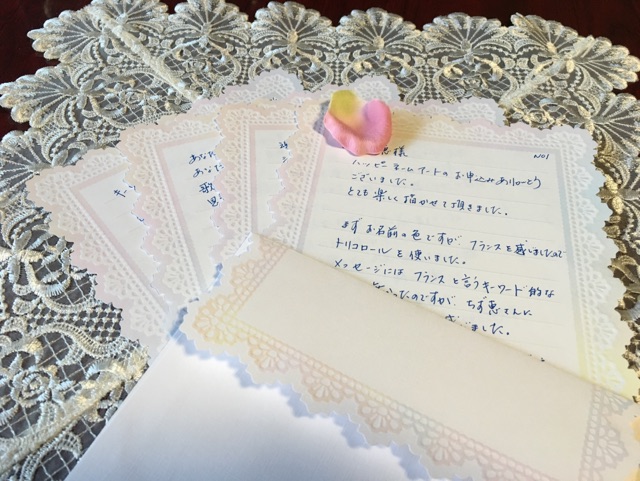 恵様
NO1
ハッピーネームアートのお申込みありがとう
ございました。
とても楽しく描かせて頂きました。
まずお名前の色ですが、フランスを感じましたので
トリコロールを使いました。
メッセージには フランスと言うキーワード的な
ったのですが ちず恵さんに
ました。
あなた
あなた
歌